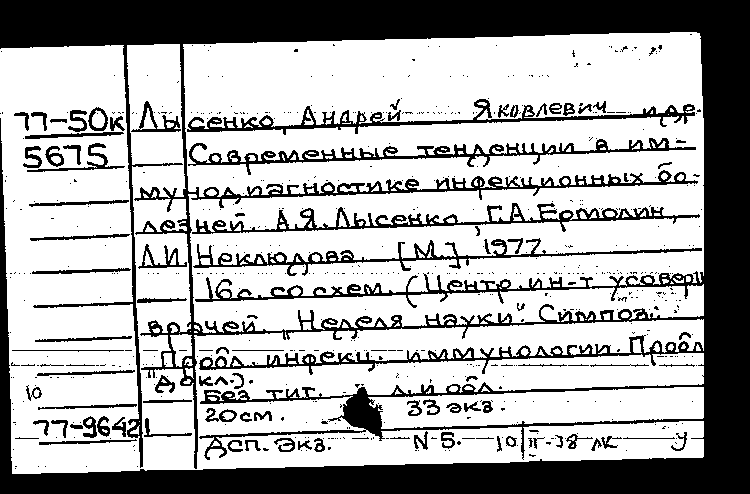 77-50к Лысенко, Андрей Яковлевич и др.
5675 Современные тенденции в им-
мунодиагностике инфекционных бо-
лезней. А.Я. Лысенко, Г.А. Ермолин,
Л.И. Неклюдова. [М.], 1977.
16с. со схем. (Центр. ин-т усоверш
врачей. „Неделя науки". Симпоз.:
Пробл. инфекц. иммунологии. Пробл
докл.).
10 Без тит. л. и обл.
20см. 33 экз.
77-96421
Дсп. экз. N 5. 10/II-38 ЛК У